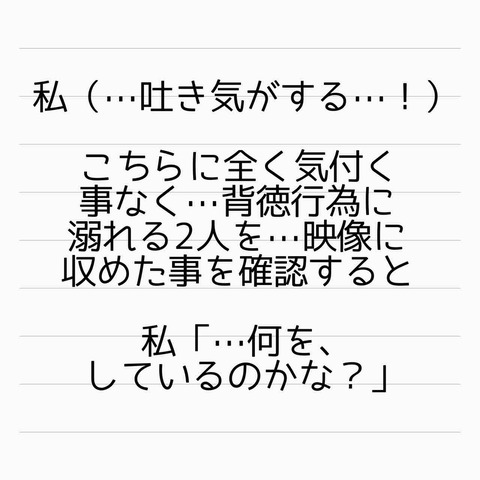 私（…吐き気がする…！）
こちらに全く気付く
事なく…背徳行為に
溺れる2人を…映像に
収めた事を確認すると
私「…何を、
しているのかな？」